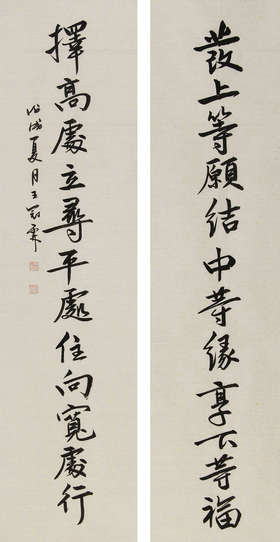 發上等願結中等緣享下等福
擇高處立尋平處住向寬處行
夏月王